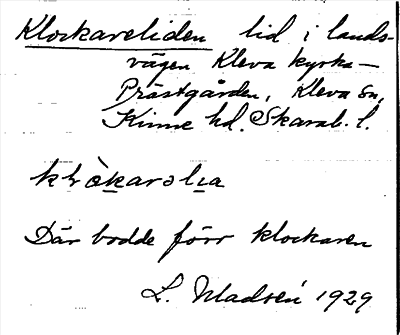 Klockareliden lid i lands-
vägen Kleva kyrka —
Prästgården, Kleva sn,
Kinne hd. Skarab. l.
Där bodde förr klockaren
L. Madsén 1929